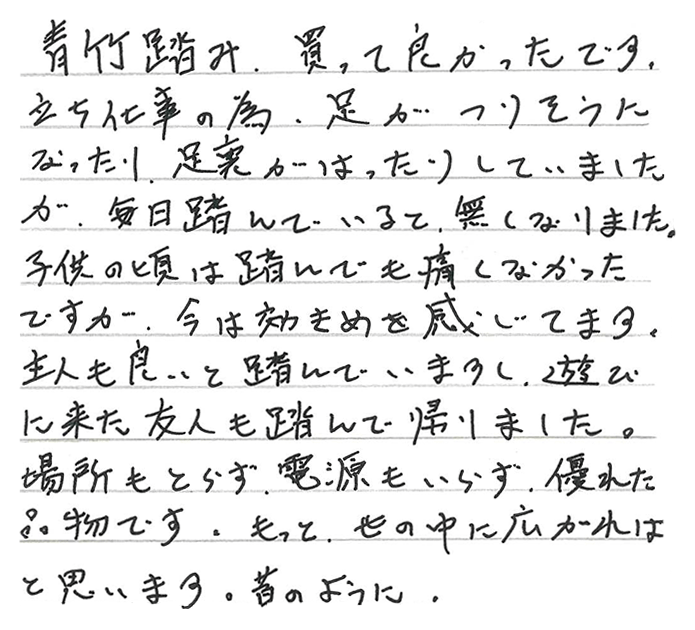 青竹踏み、買って良かったです。
立ち仕事の為、足が つりそうに
なったり、足裏がはったりしていました
が、毎日踏んでいると、無くなりました。
子供の頃は踏んでも痛くなかった
ですが、今は効きめを感じてます。
主人も良いと踏んでいますし、遊び
に来た友人も踏んで帰りました。
場所もとらず、電源もいらず、優れた
品物です。もっと、世の中に広がれば
と思います。昔のように。